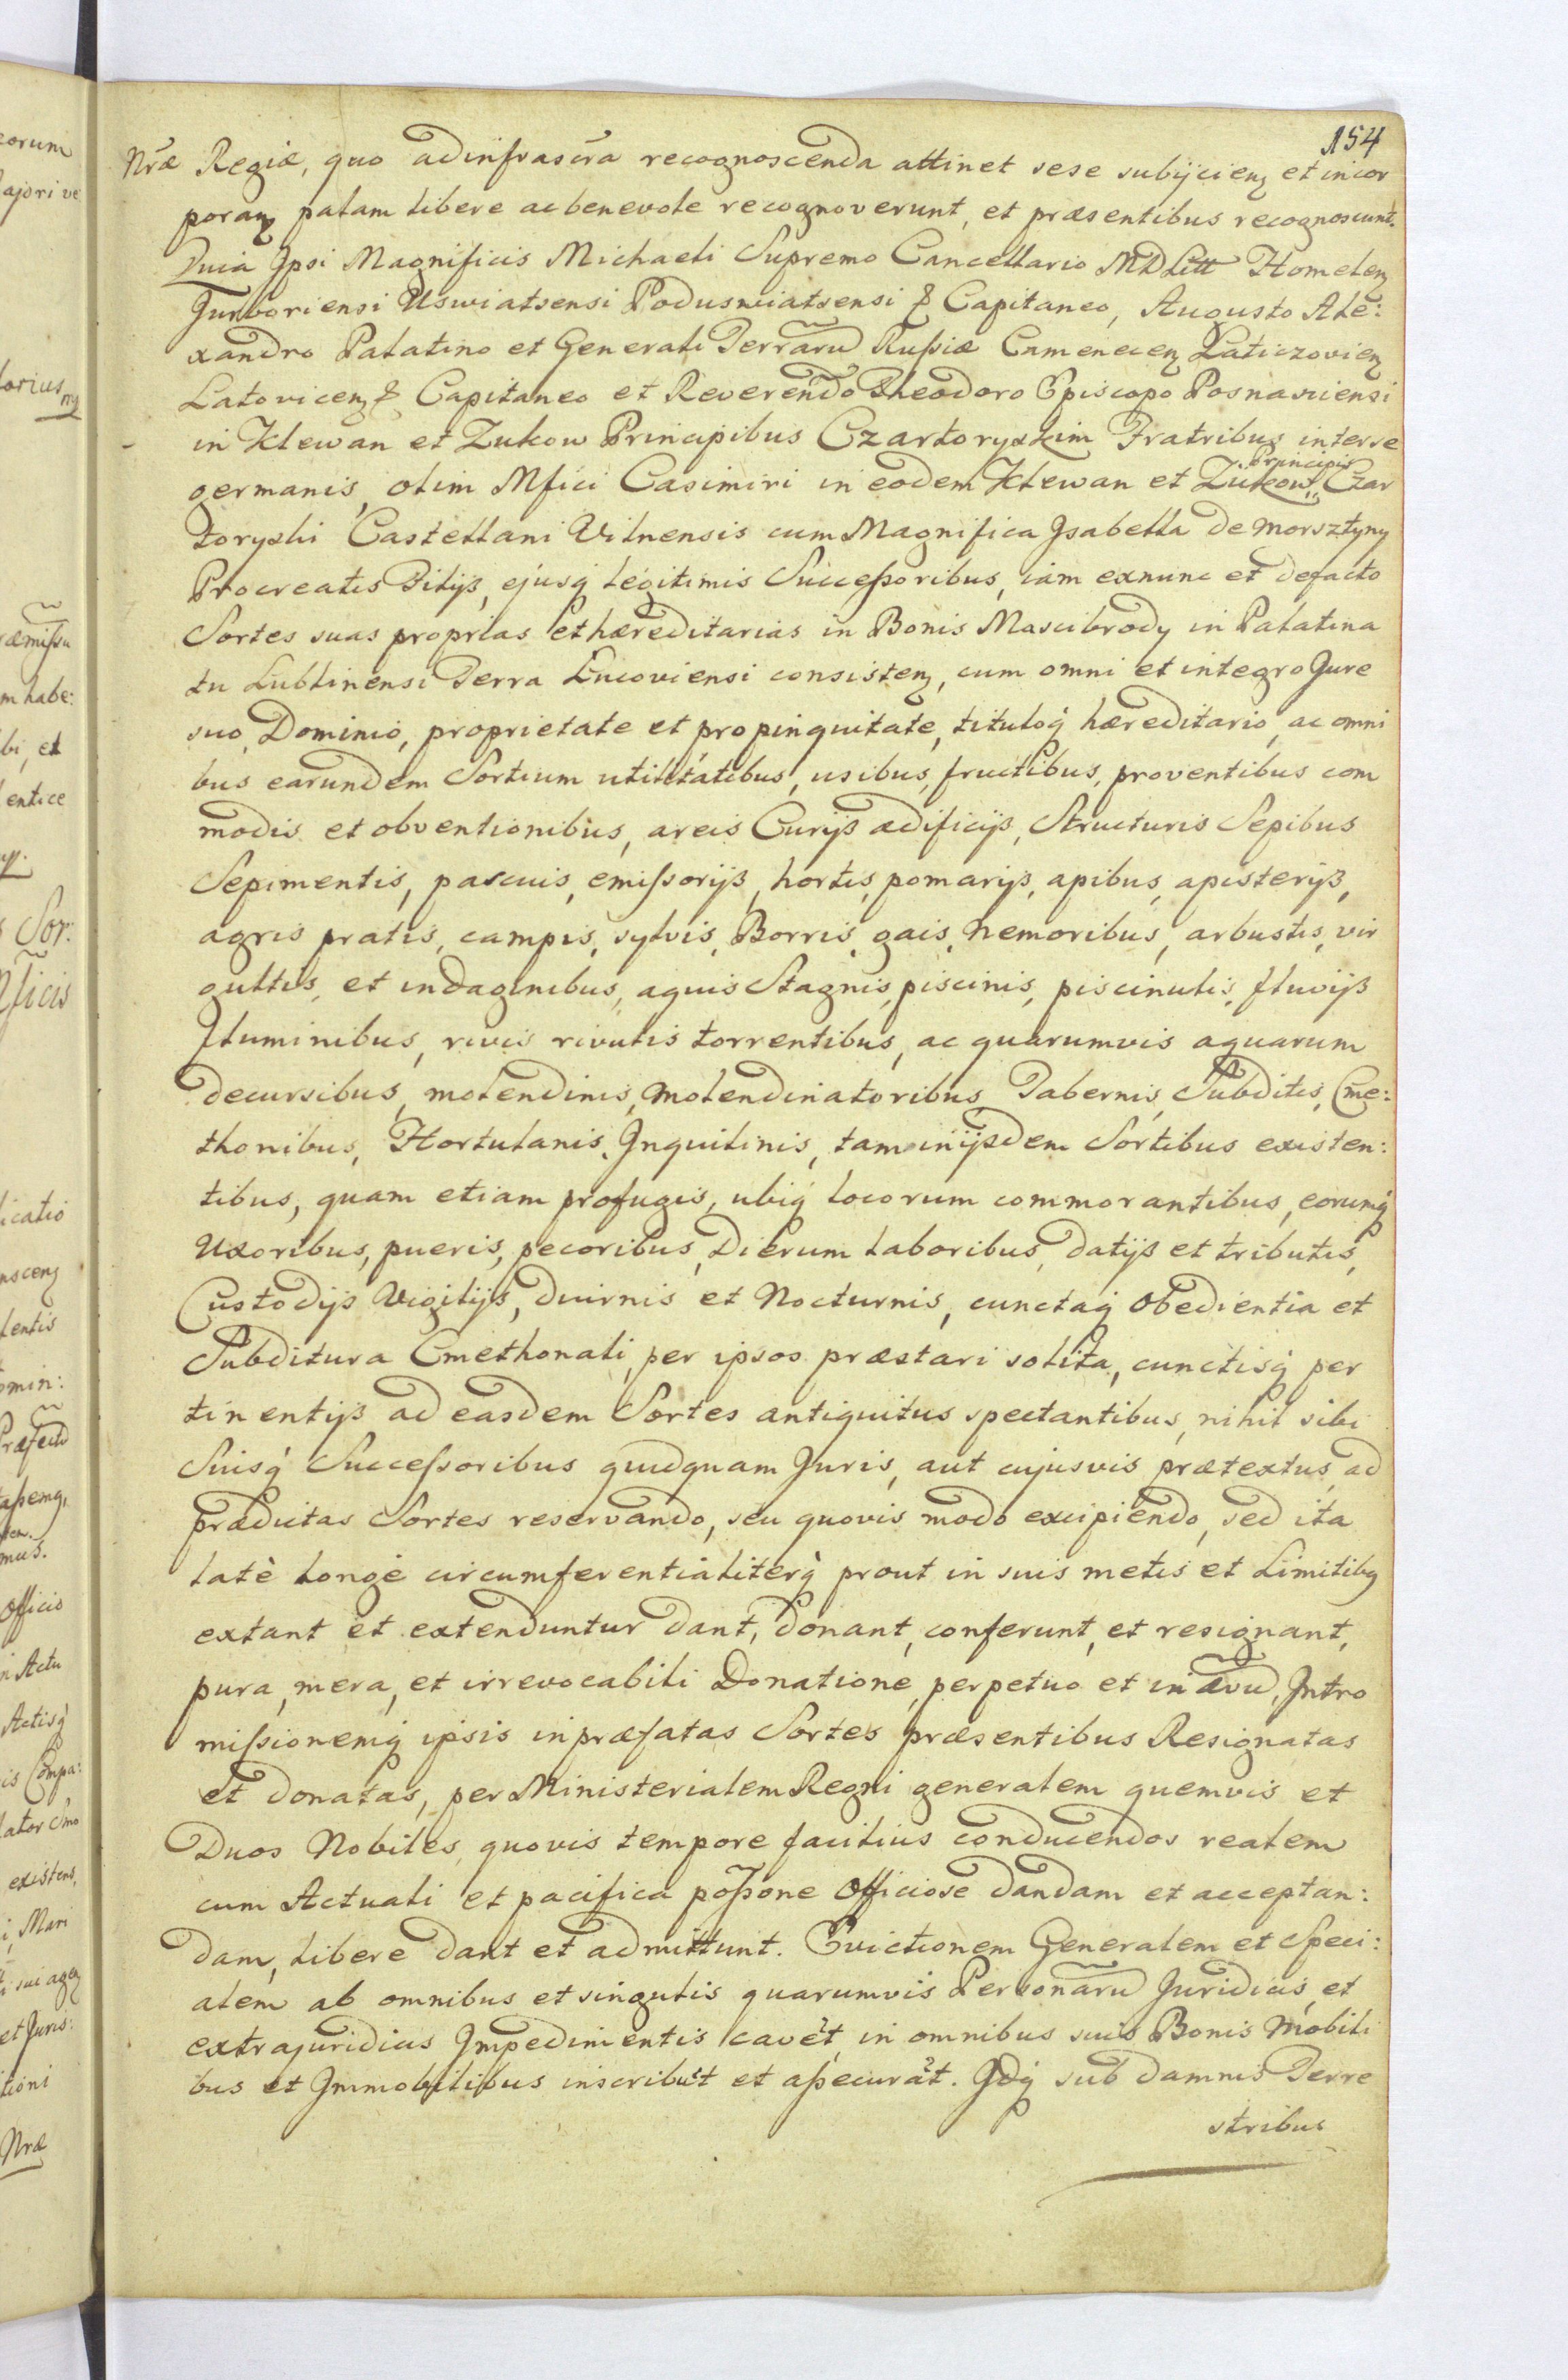 154
Nrae Regiae, quo adinfrascra recognoscenda attinet sese subijcienz et incor
poranz palam libere ac benevole recognoverunt, et praesentibus recognoscunt.
Quia Ipsi Magnificis Michaeli Supremo Cancellario MDLitt Homelenz
Jurboriensi Uswiatsensi Poduswiatsensi & Capitaneo, Augusto Ale:
xandro Palatino et Generali Terrarũ Rußiae Camenecenz Laticzovienz
Latovicenz & Capitaneo et Reverendo Theodoro Episcopo Posnaniensi
in Klewan et Zukow Principibus Czartoryskim Fratribus interse
germanis, olim Mfici Casimiri in eodem Klewan et Zukow Principis Czar
toryski Castellani Vilnensis cum Magnifica Isabella de Morsztyny
Procreatis Filijs, ejusq́ legitimis Succeßoribus, iam exnunc et defacto
Sortes suas proprias et haereditarias in Bonis Mascibrody in Palatina
tu Lublinensi Terra Lucoviensi consistenz, cum omni et integro Jure
suo Dominio, proprietate et propinquitate, tituloq́ haereditario, ac omni
bus earundem Sortium utilitatibus, usibus, fructibus, proventibus com
modis et obventionibus, areis Curijs aedificijs, Structuris Sepibus
Sepimentis, pascuis, emißorijs, hortis, pomarijs, apibus, apisterijs,
agris pratis, campis, sylvis, Borris, gais, nemoribus, arbustis, vir
gultis, et indaginibus, aquis Stagnis, piscinis, piscinulis, fluvijs
Fluminibus, rivis rivulis torrentibus, ac quarumvis aquarum
decursibus, molendinis, molendinatoribus Tabernis, Subditis, Cme:
thonibus, Hortulanis, Inquilinis, tam inijsdem Sortibus existen:
tibus, quam etiam profugis, ubiq́ locorum commorantibus, eorumq́
Uxoribus, pueris, pecoribus, Dierum laboribus, datijs et tributis,
Custodijs Vigilijs, diurnis et Nocturnis, cunctaq́ obedientia et
Subditura Cmethonali, per ipsos praestari solita, cunctisq́ per
tinentijs ad easdem Sortes antiquitus spectantibus, nihil sibi
Suisq́ Succeßoribus quidquam Juris, aut cujusvis praetextus, ad
praedictas Sortes reservando, seu quovis modo excipiendo, sed ita
latè longè circumferentialiterq́ prout in suis metis et Limitibq
extant et extenduntur dant, donant, conferunt, et resignant,
pura, mera, et irrevocabili Donatione, perpetuo et in aevũ, Intro
mißionemq́ ipsis in praefatas Sortes praesentibus Resignatas
et donatas, per Ministerialem Regni generalem quemvis et
Duos Nobiles, quovis tempore facilius conducendos realem
cum Actuali et pacifica poßone officiose dandam et acceptan:
dam, libere dant et admittunt. Evictionem Generalem et Speci:
alem ab omnibus et singulis quarumvis Personarũ Juridicis, et
extrajuridicis Impedimentis cavet, in omnibus suis Bonis Mobili
bus et Immobilibus inscribut et aßecurat. Idq́ sub damnis Terre
stribus